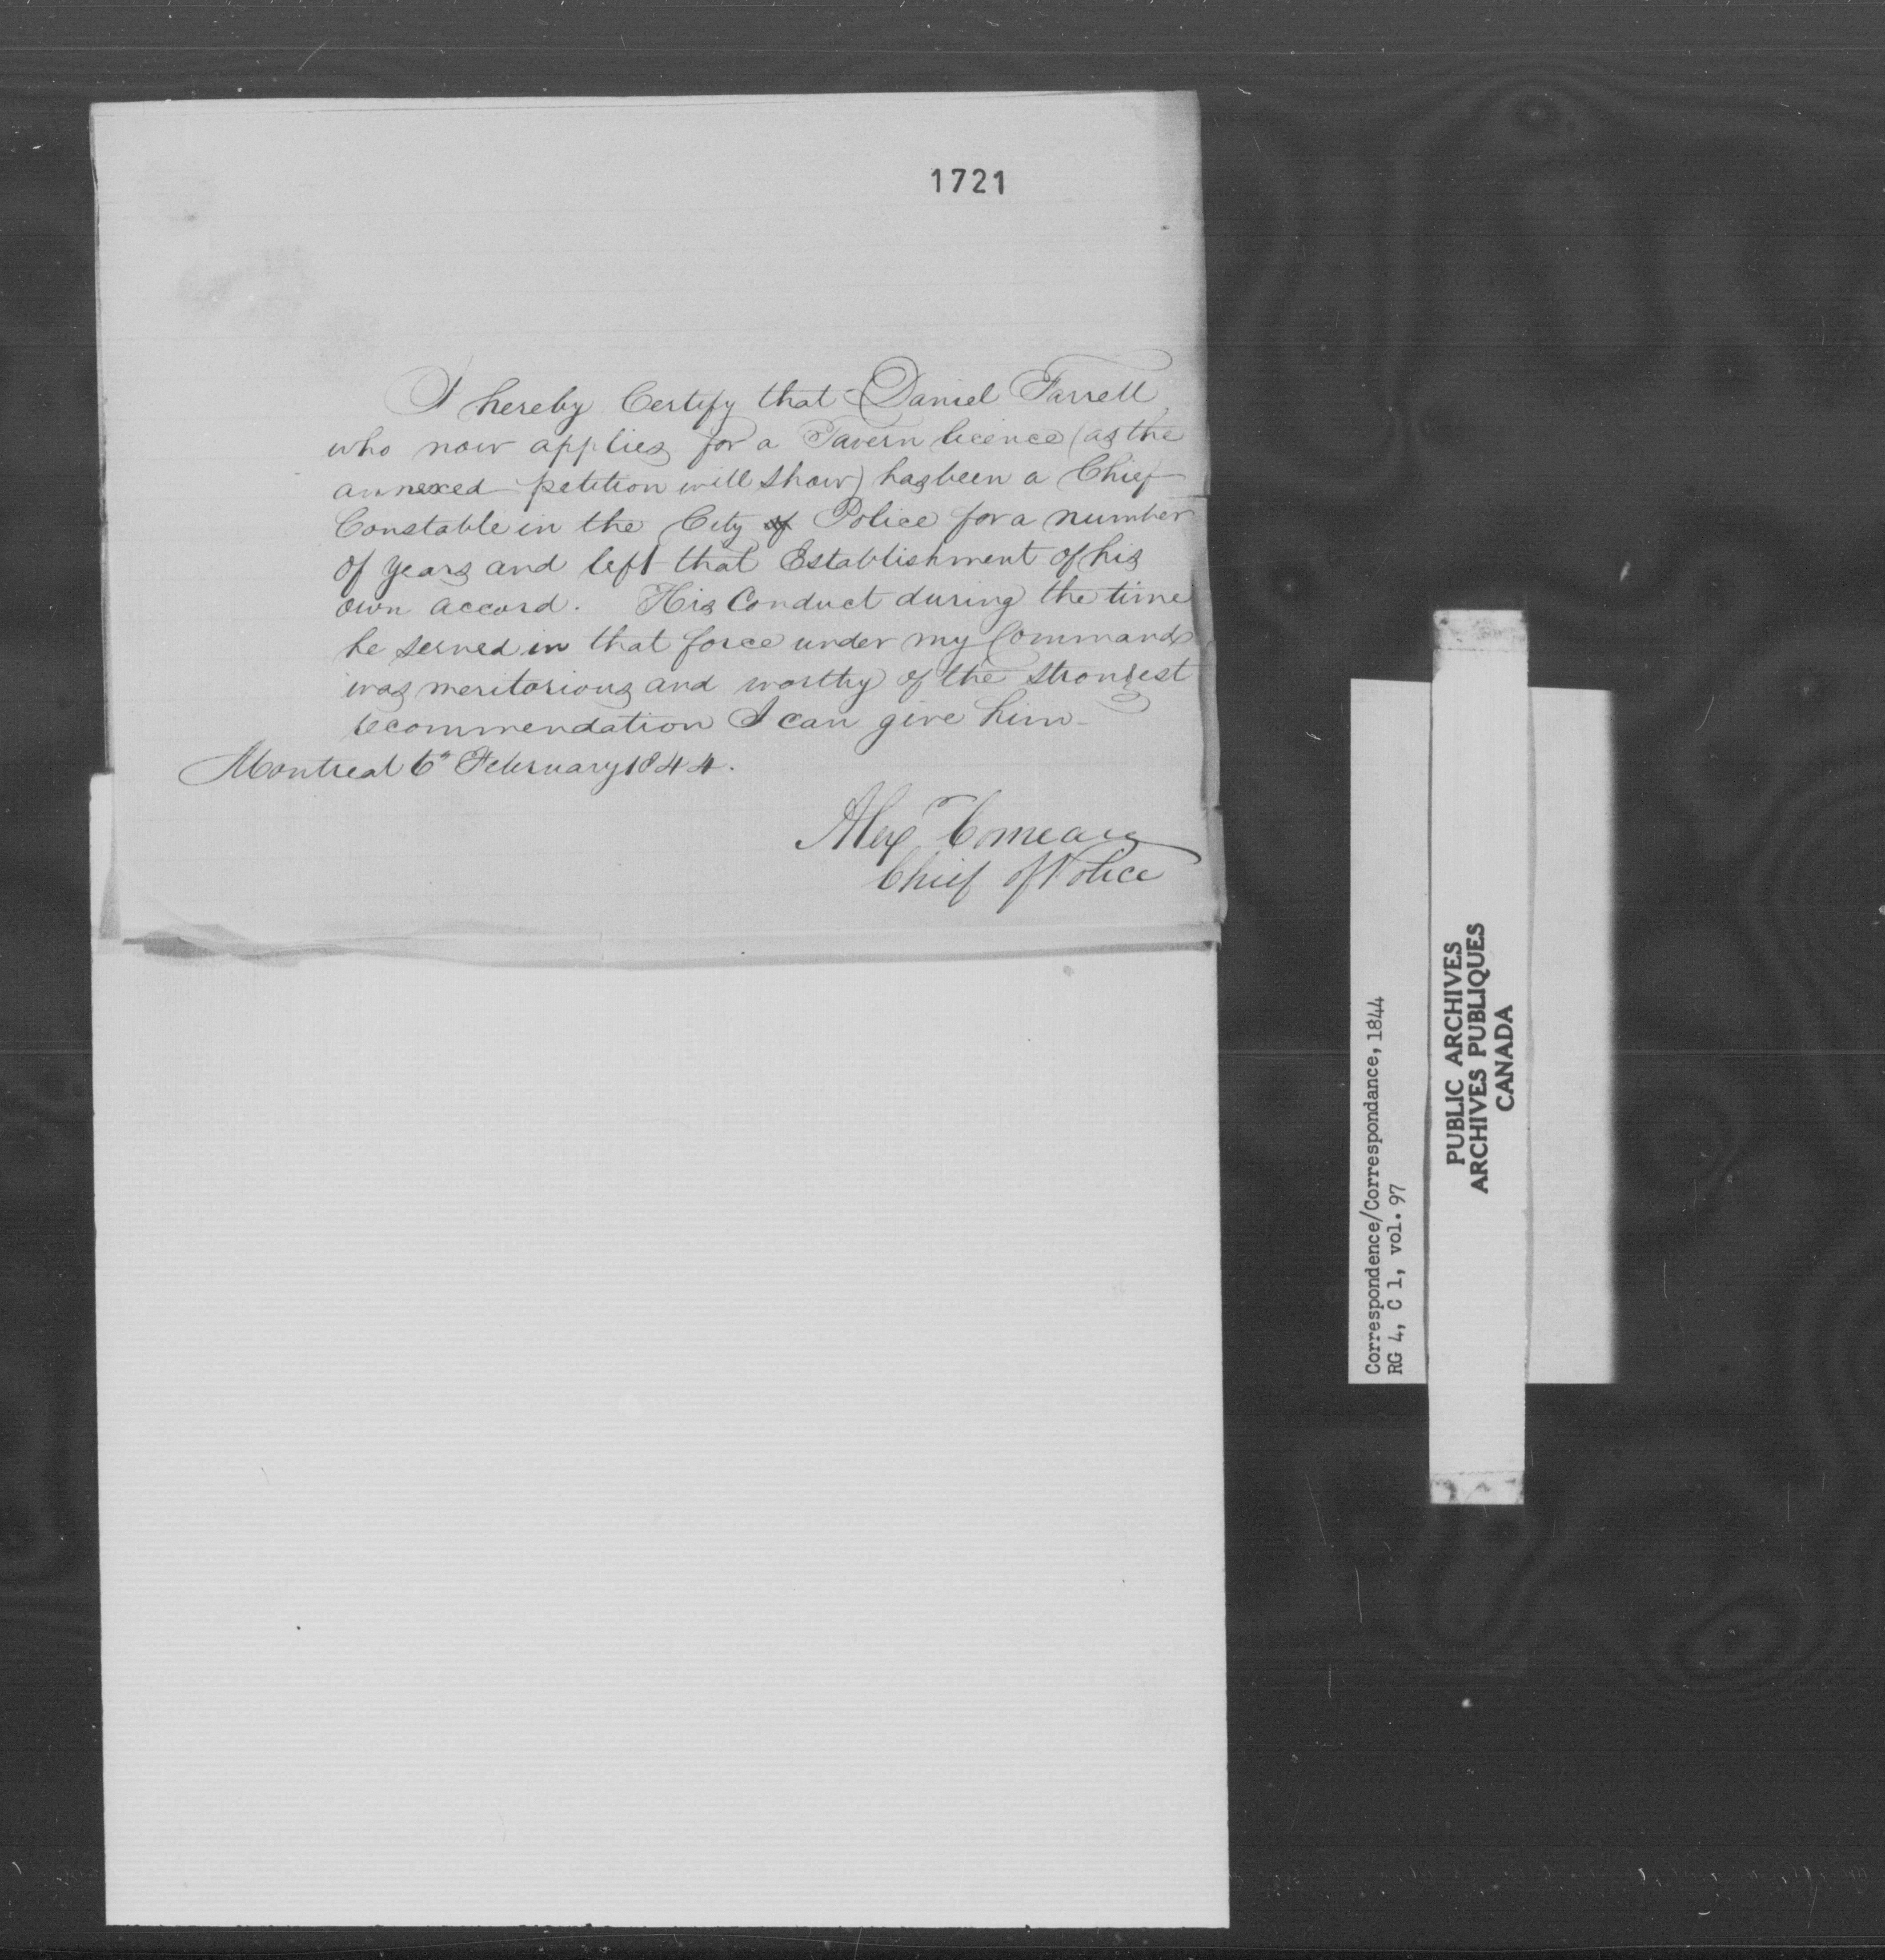 1721
I hereby Certify that Daniel Farrell
who now applies for a Tavern licence (as the
annexed petition will show) has been a Chief
Constable in the City of Police for a number
of years and left that Establishment of his
own accord. His Conduct during the time
he served in that force under my Command
was meritorious and worthy of the strongest
recommendation I can give him
Montreal 6th February 1844.
Alex Comeau
Chief of Police
Correspondence/Correspondance, 1844
RG 4, C 1, vol. 97
PUBLIC ARCHIVES
ARCHIVES PUBLIQUES
CANADA